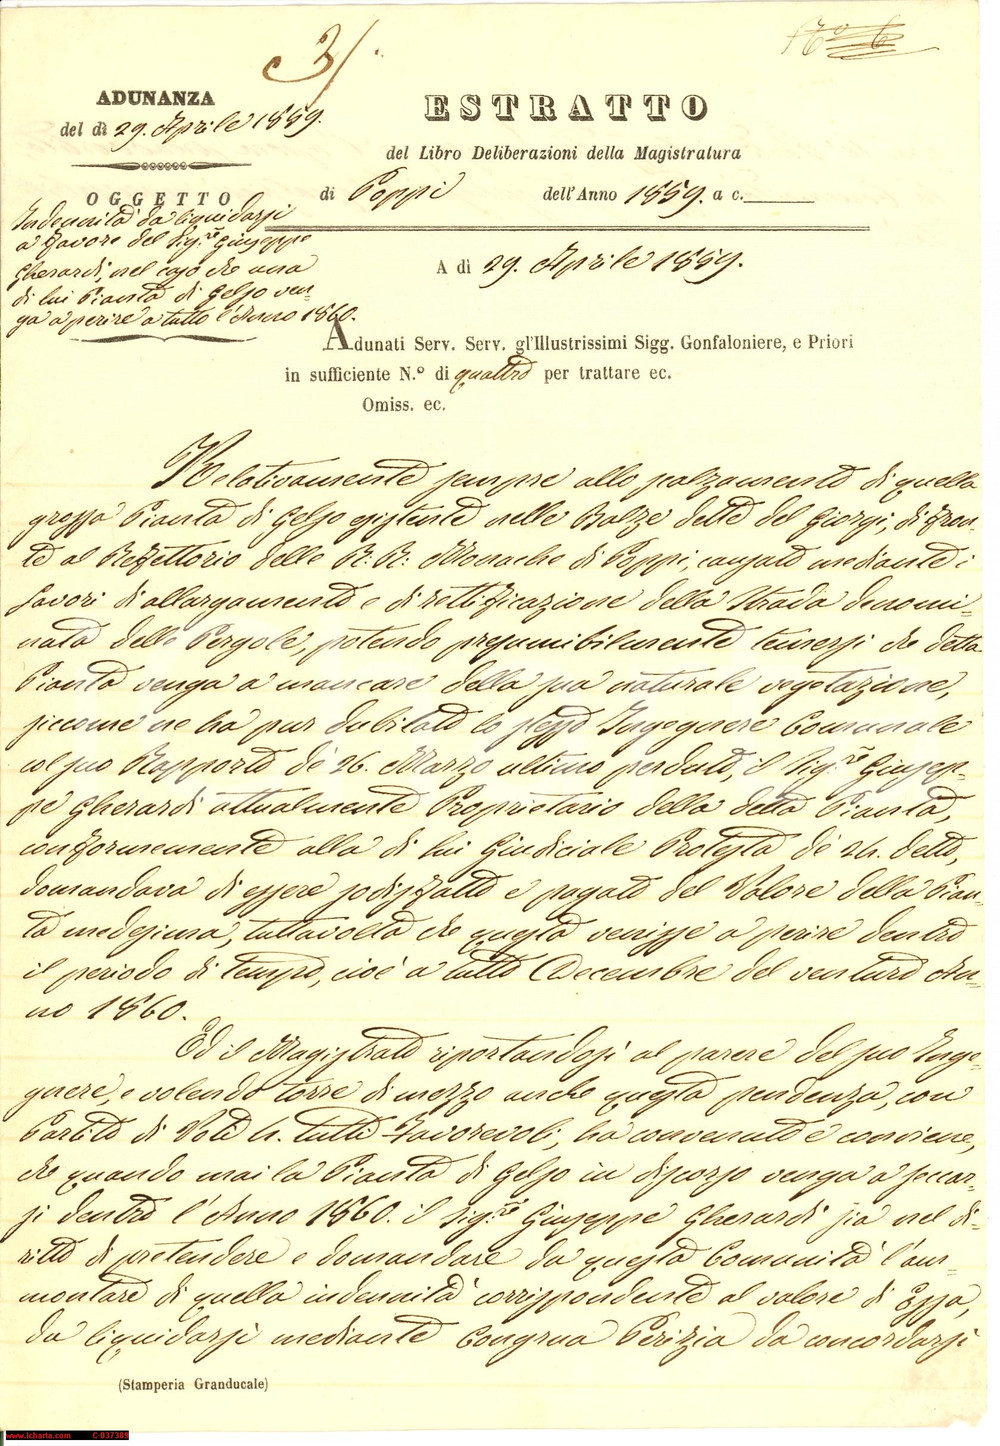 3/.
N.° 6
ADUNANZA
del dì 29. Aprile 1859.
OGGETTO
Indennità da liquidarsi
a favore del Sig.re Giuseppe
Gherardi, nel caso che una
di lui Pianta di Gelso ven-
ga a perire a tutto l'Anno 1860.
ESTRATTO
del Libro Deliberazioni della Magistratura
di Poppi dell'Anno 1859. a c.
A dì 29. Aprile 1859.
Adunati Serv. Serv. gl'Illustrissimi Sigg. Gonfaloniere, e Priori
in sufficiente N.° di quattro per trattare ec.
Omiss. ec.
Relativamente sempre allo scalzamento di quella
grossa Pianta di Gelso esistente nelle Balze dette del Giorgi, di fron-
te al Refettorio delle R: R: Monache di Poppi, causato mediante i
lavori di allargamento e di rettificazione della Strada denomi-
nata delle Pergole, potendo presumibilmente temersi che detta
Pianta venga a mancare della sua naturale vegetazione,
siccome ne ha pur dubitato lo stesso Ingegnere Comunale
col suo Rapporto de' 26. Marzo ultimo perduto, il Sig.re Giusep-
pe Gherardi attualmente Proprietario della detta Pianta,
conformemente alla di lui Giudiciale Protesta de' 24. detto,
domandava di essere sodisfatto e pagato del Valore della Pian-
ta medesima, tuttavolta che questa venisse a perire dentro
il periodo di tempo, cioè a tutto Decembre del venturo An-
no 1860.
Ed il Magistrato riportandosi al parere del suo Inge-
gnere, e volendo torre di mezzo anche questa pendenza, con
Partito di Voti 4. tutti favorevoli, ha convenuto e conviene,
che quando mai la Pianta di Gelso in discorso venga a seccar-
si dentro l'Anno 1860. il Sig.re Giuseppe Gherardi sia nel di-
ritto di pretendere e domandare da questa Comunità l'am-
montare di quella indennità corrispondente al valore di Essa,
da liquidarsi mediante congrua Perizia da concordarsi
(Stamperia Granducale)
www.icharta.com C-037389